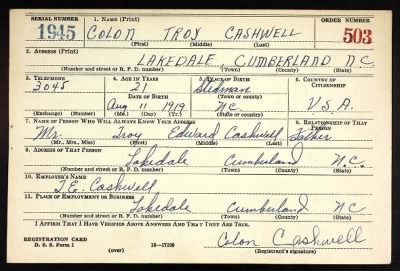 SERIAL NUMBER 1. NAME (Print) ORDER NUMBER
1945 COLON TROY CASHWELL 503
(First) (Middle) (Last)
2. ADDRESS (Print)
LAKEDALE, CUMBERLAND N.C.
(Number and street or R. F. D. number) (Town) (County) (State)
3. TELEPHONE 4. AGE IN YEARS 5. PLACE OF BIRTH 6. COUNTRY OF CITIZENSHIP
3045 21 Stedman
DATE OF BIRTH (Town or county)
Aug 11 1919 N.C. U.S.A.
(Exchange) (Number) (Mo.) (Day) (Yr.) (State or country)
7. NAME OF PERSON WHO WILL ALWAYS KNOW YOUR ADDRESS 8. RELATIONSHIP OF THAT PERSON
Mr. Troy Edward Cashwell Father
(Mr., Mrs., Miss) (First) (Middle) (Last)
9. ADDRESS OF THAT PERSON
Lakedale Cumberland N.C.
(Number and street or R. F. D. number) (Town) (County) (State)
10. EMPLOYER'S NAME
T.E. Cashwell
11. PLACE OF EMPLOYMENT OR BUSINESS
Lakedale Cumberland NC
(Number and street or R. F. D. number) (Town) (County) (State)
I AFFIRM THAT I HAVE VERIFIED ABOVE ANSWERS AND THAT THEY ARE TRUE.
REGISTRATION CARD
D. S. S. Form 1 16—17105 Colon Cashwell
(over) (Registrant's signature)